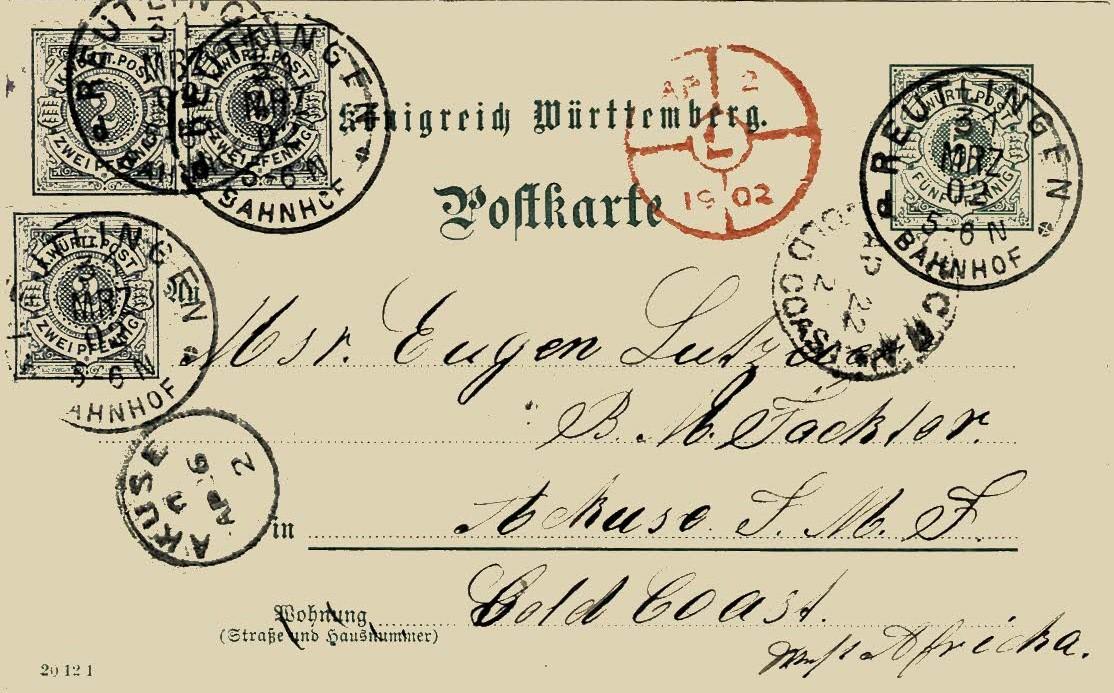 K. WÜRTT. POST
ZWEI PFENNIG
REUTLINGEN
MRZ
02
BAHNHOF
WÜRTT. POST
ZWEI PFENNIG
REUTLINGEN
3
MRZ
02
5-6 N
BAHNHOF
Königreich Württemberg.
AP 2
L
19 02
K. WÜRTT. POST
FÜNF PFENNIG
REUTLINGEN
3
MRZ
02
5-6 N
d BAHNHOF
Postkarte
K. WÜRTT. POST
ZWEI PFENNIG
3
MRZ
5-6 N
BAHNHOF
GOLD COAST
AP 22
2
An
Msr. Eugen Lutz
B. M. Facktor.
AKUSE
AP 26
2
in
Akuse. F. M. F.
Gold Coast.
Wohnung
(Straße und Hausnummer)
Africka.
20 12 1